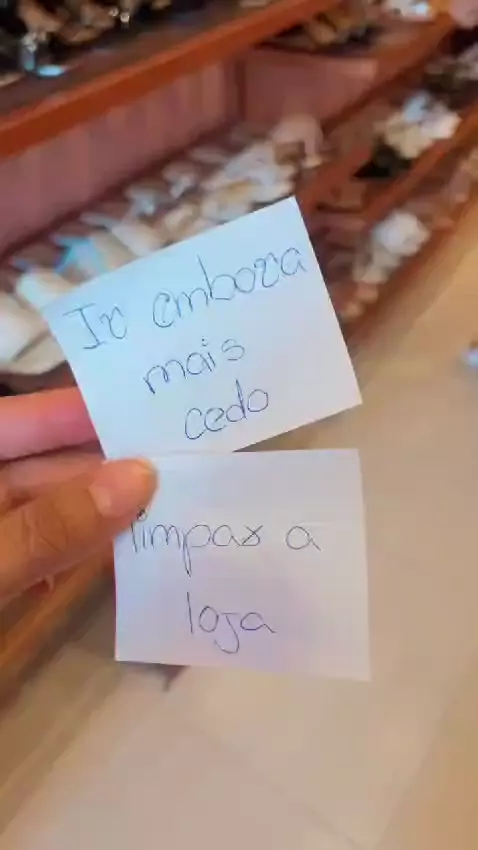 Ir embora
mais
cedo
limpar a
loja